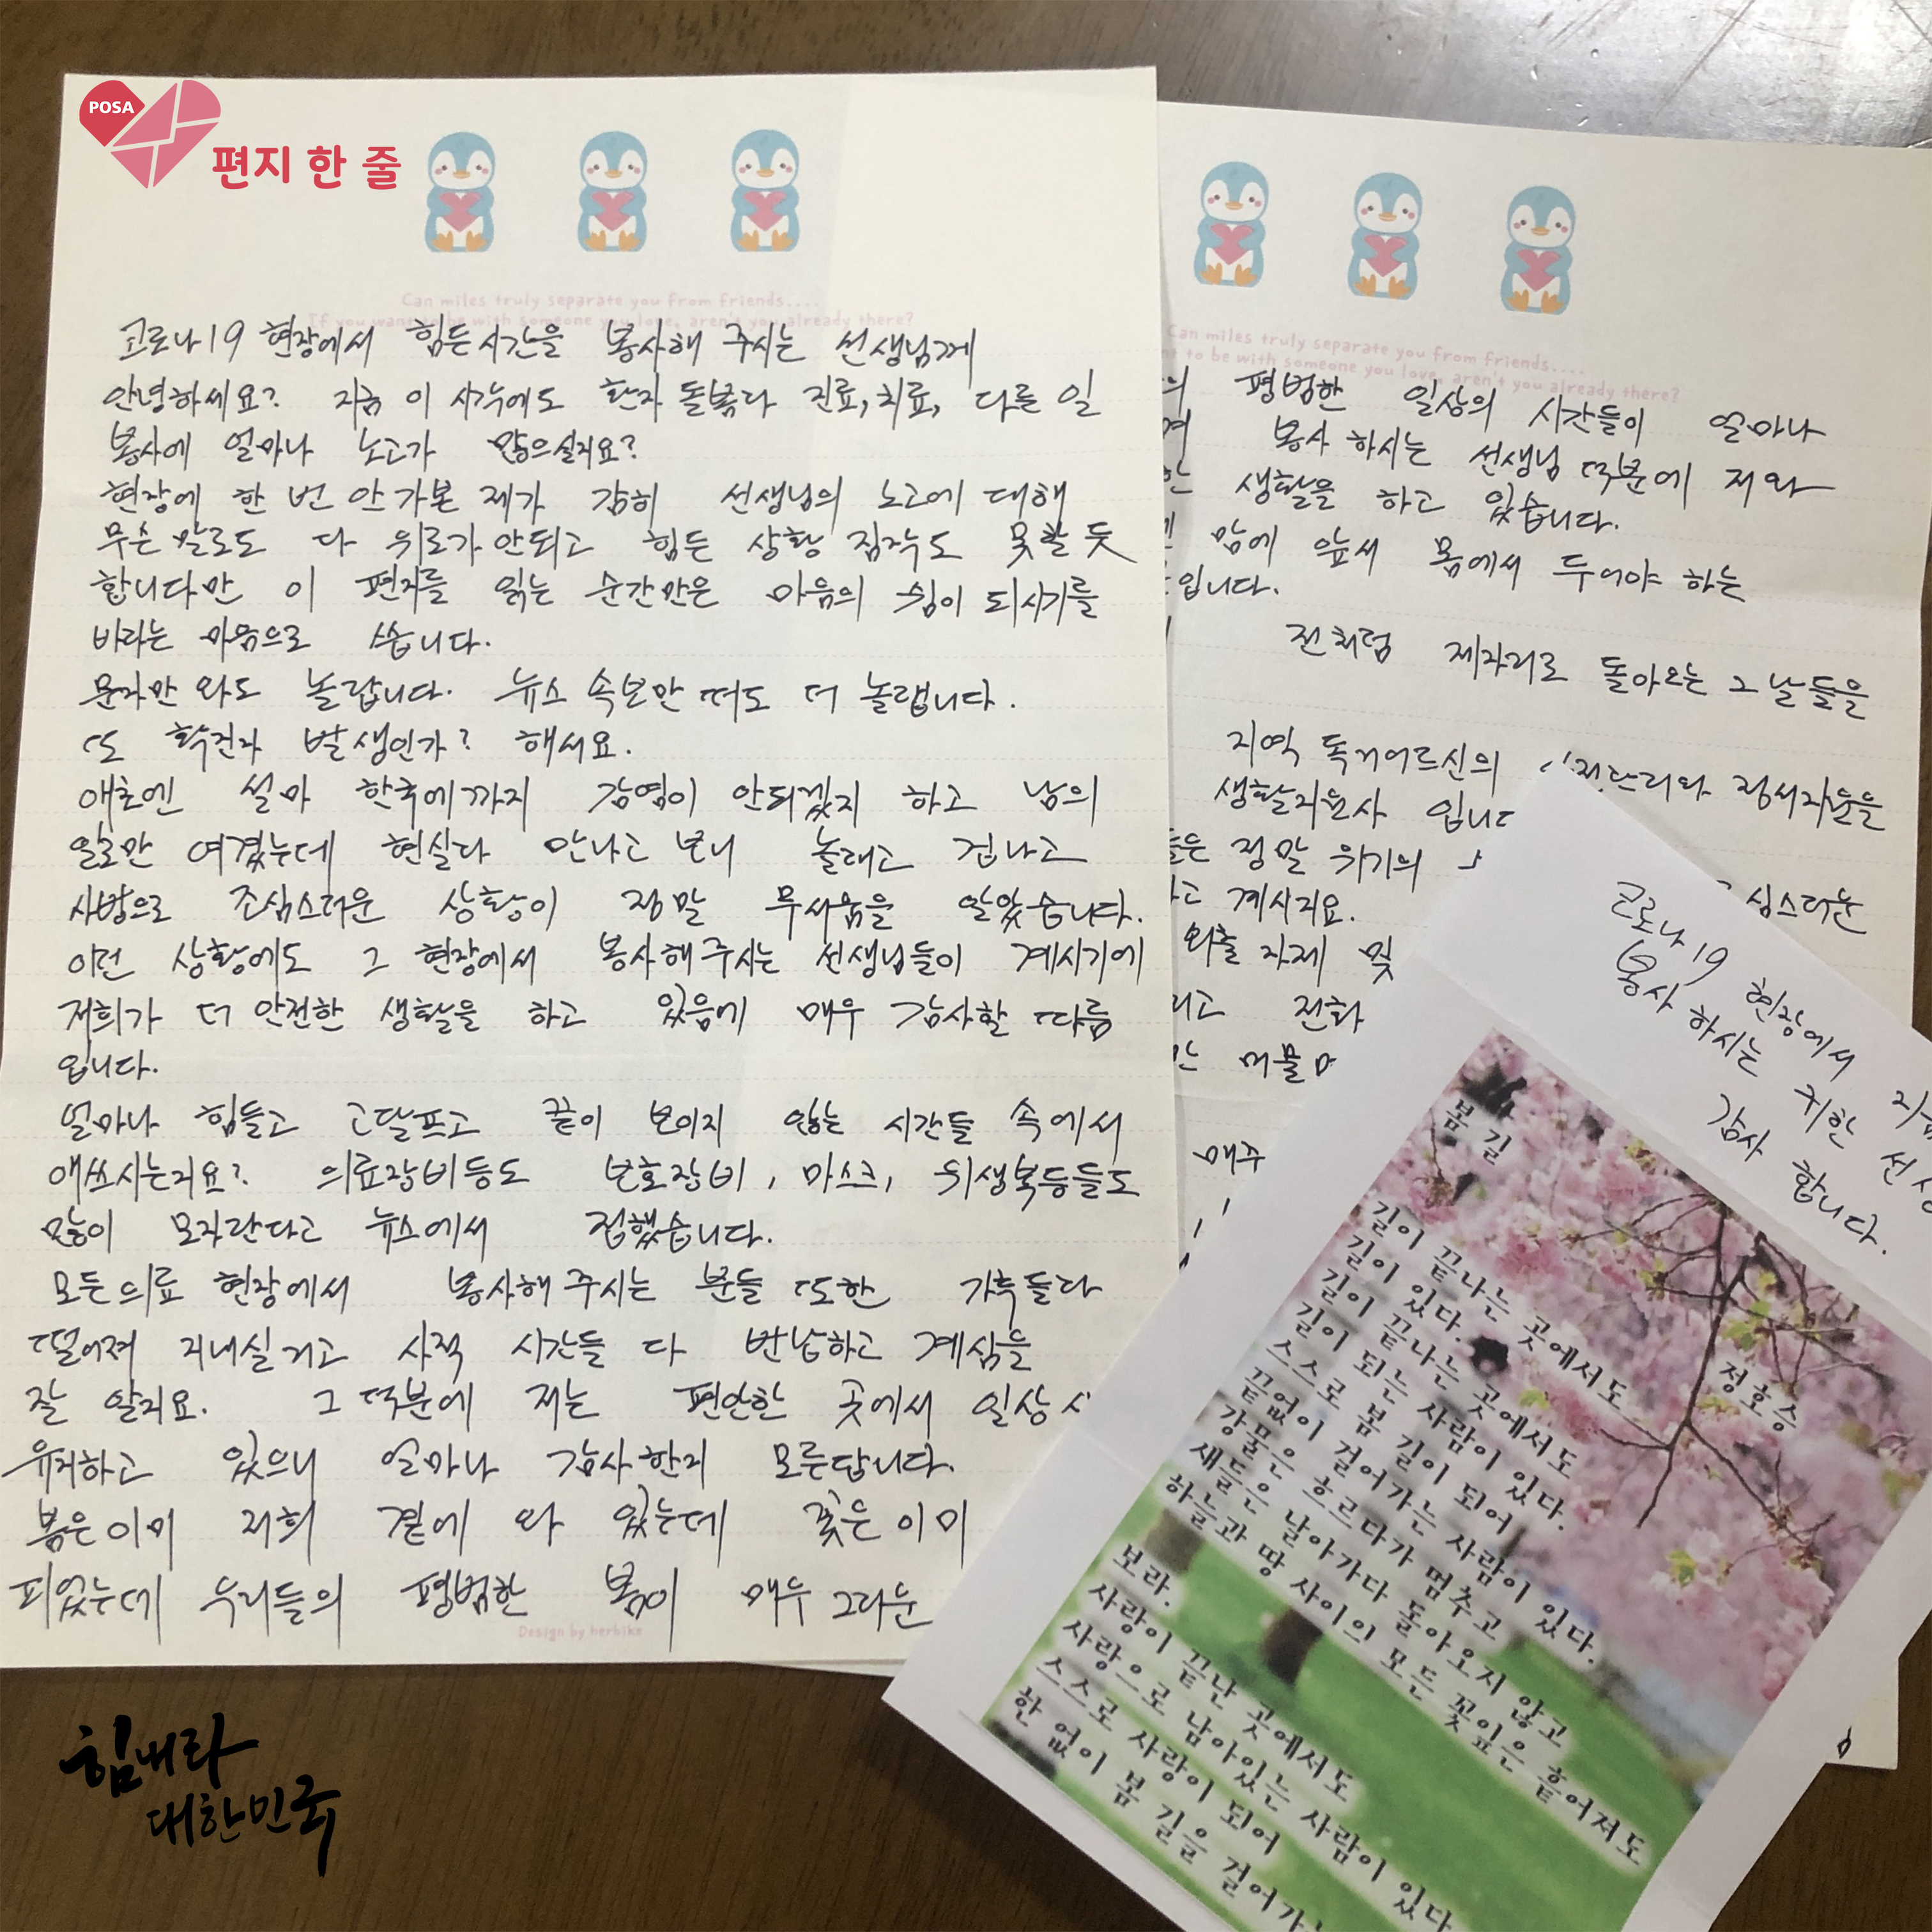 POSA
편지 한 줄
Can miles truly separate you from friends....
If you want to be with someone you love, aren't you already there?
코로나19 현장에서 힘든시간을 봉사해 주시는 선생님께
안녕하세요? 지금 이 시각에도 환자 돌봄과 진료, 치료, 다른 일
봉사에 얼마나 노고가 많으실지요?
현장에 한 번 안가본 제가 감히 선생님의 노고에 대해
무슨 말로도 다 위로가 안되고 힘든 상황 짐작도 못할 듯
합니다만 이 편지를 읽는 순간만은 마음의 쉼이 되시기를
바라는 마음으로 씁니다.
문자만 와도 놀랍니다. 뉴스 속보만 떠도 더 놀랩니다.
또 확진자 발생인가? 해서요.
애초엔 설마 한국에까지 감염이 안되겠지 하고 남의
일로만 여겼는데 현실과 만나고 보니 놀래고 겁나고
사방으로 조심스러운 상황이 정말 무서움을 알았습니다.
이런 상황에도 그 현장에서 봉사해주시는 선생님들이 계시기에
저희가 더 안전한 생활을 하고 있음에 매우 감사할 따름
입니다.
얼마나 힘들고 고달프고 끝이 보이지 않는 시간들 속에서
애쓰시는지요? 의료장비등도 보호장비, 마스크, 위생복등들도
많이 모자란다고 뉴스에서 접했습니다.
모든의료 현장에서 봉사해주시는 분들 또한 가족들과
떨어져 지내실거고 사적 시간들 다 반납하고 계심을
잘 알지요. 그 덕분에 저는 편안한 곳에서 일상
유지하고 있으니 얼마나 감사한지 모른답니다.
봄은이미 저희 곁에 와 있는데 꽃은 이미
피었는데 우리들의 평범한 봄이 매우 그리운
Design by herbike
Can miles truly separate you from friends....
to be with someone you love, aren't you already there?
평범한 일상의 시간들이 얼마나
봉사 하시는 선생님 덕분에 저와
생활을 하고 있습니다.
맘에 앞서 몸에서 두어야 하는
입니다.
전처럼 제자리로 돌아오는 그날들을
지역 독거어르신의
생활지원사
정말 위기의
계시지요.
외출 자제 및
전화
머물
매주
코로나19 현장에서
봉사 하시는 귀한
감사 합니다.
봄 길
정호승
길이 끝나는 곳에서도
길이 있다.
길이 끝나는 곳에서도
길이 되는 사람이 있다.
스스로 봄 길이 되어
끝없이 걸어가는 사람이 있다.
강물은 흐르다가 멈추고
새들은 날아가다 돌아오지 않고
하늘과 땅 사이의 모든 꽃잎은 흩어져도
보라.
사랑이 끝난 곳에서도
사랑으로 남아있는 사람이 있다
스스로 사랑이 되어
한 없이 봄 길을
힘내라
대한민국